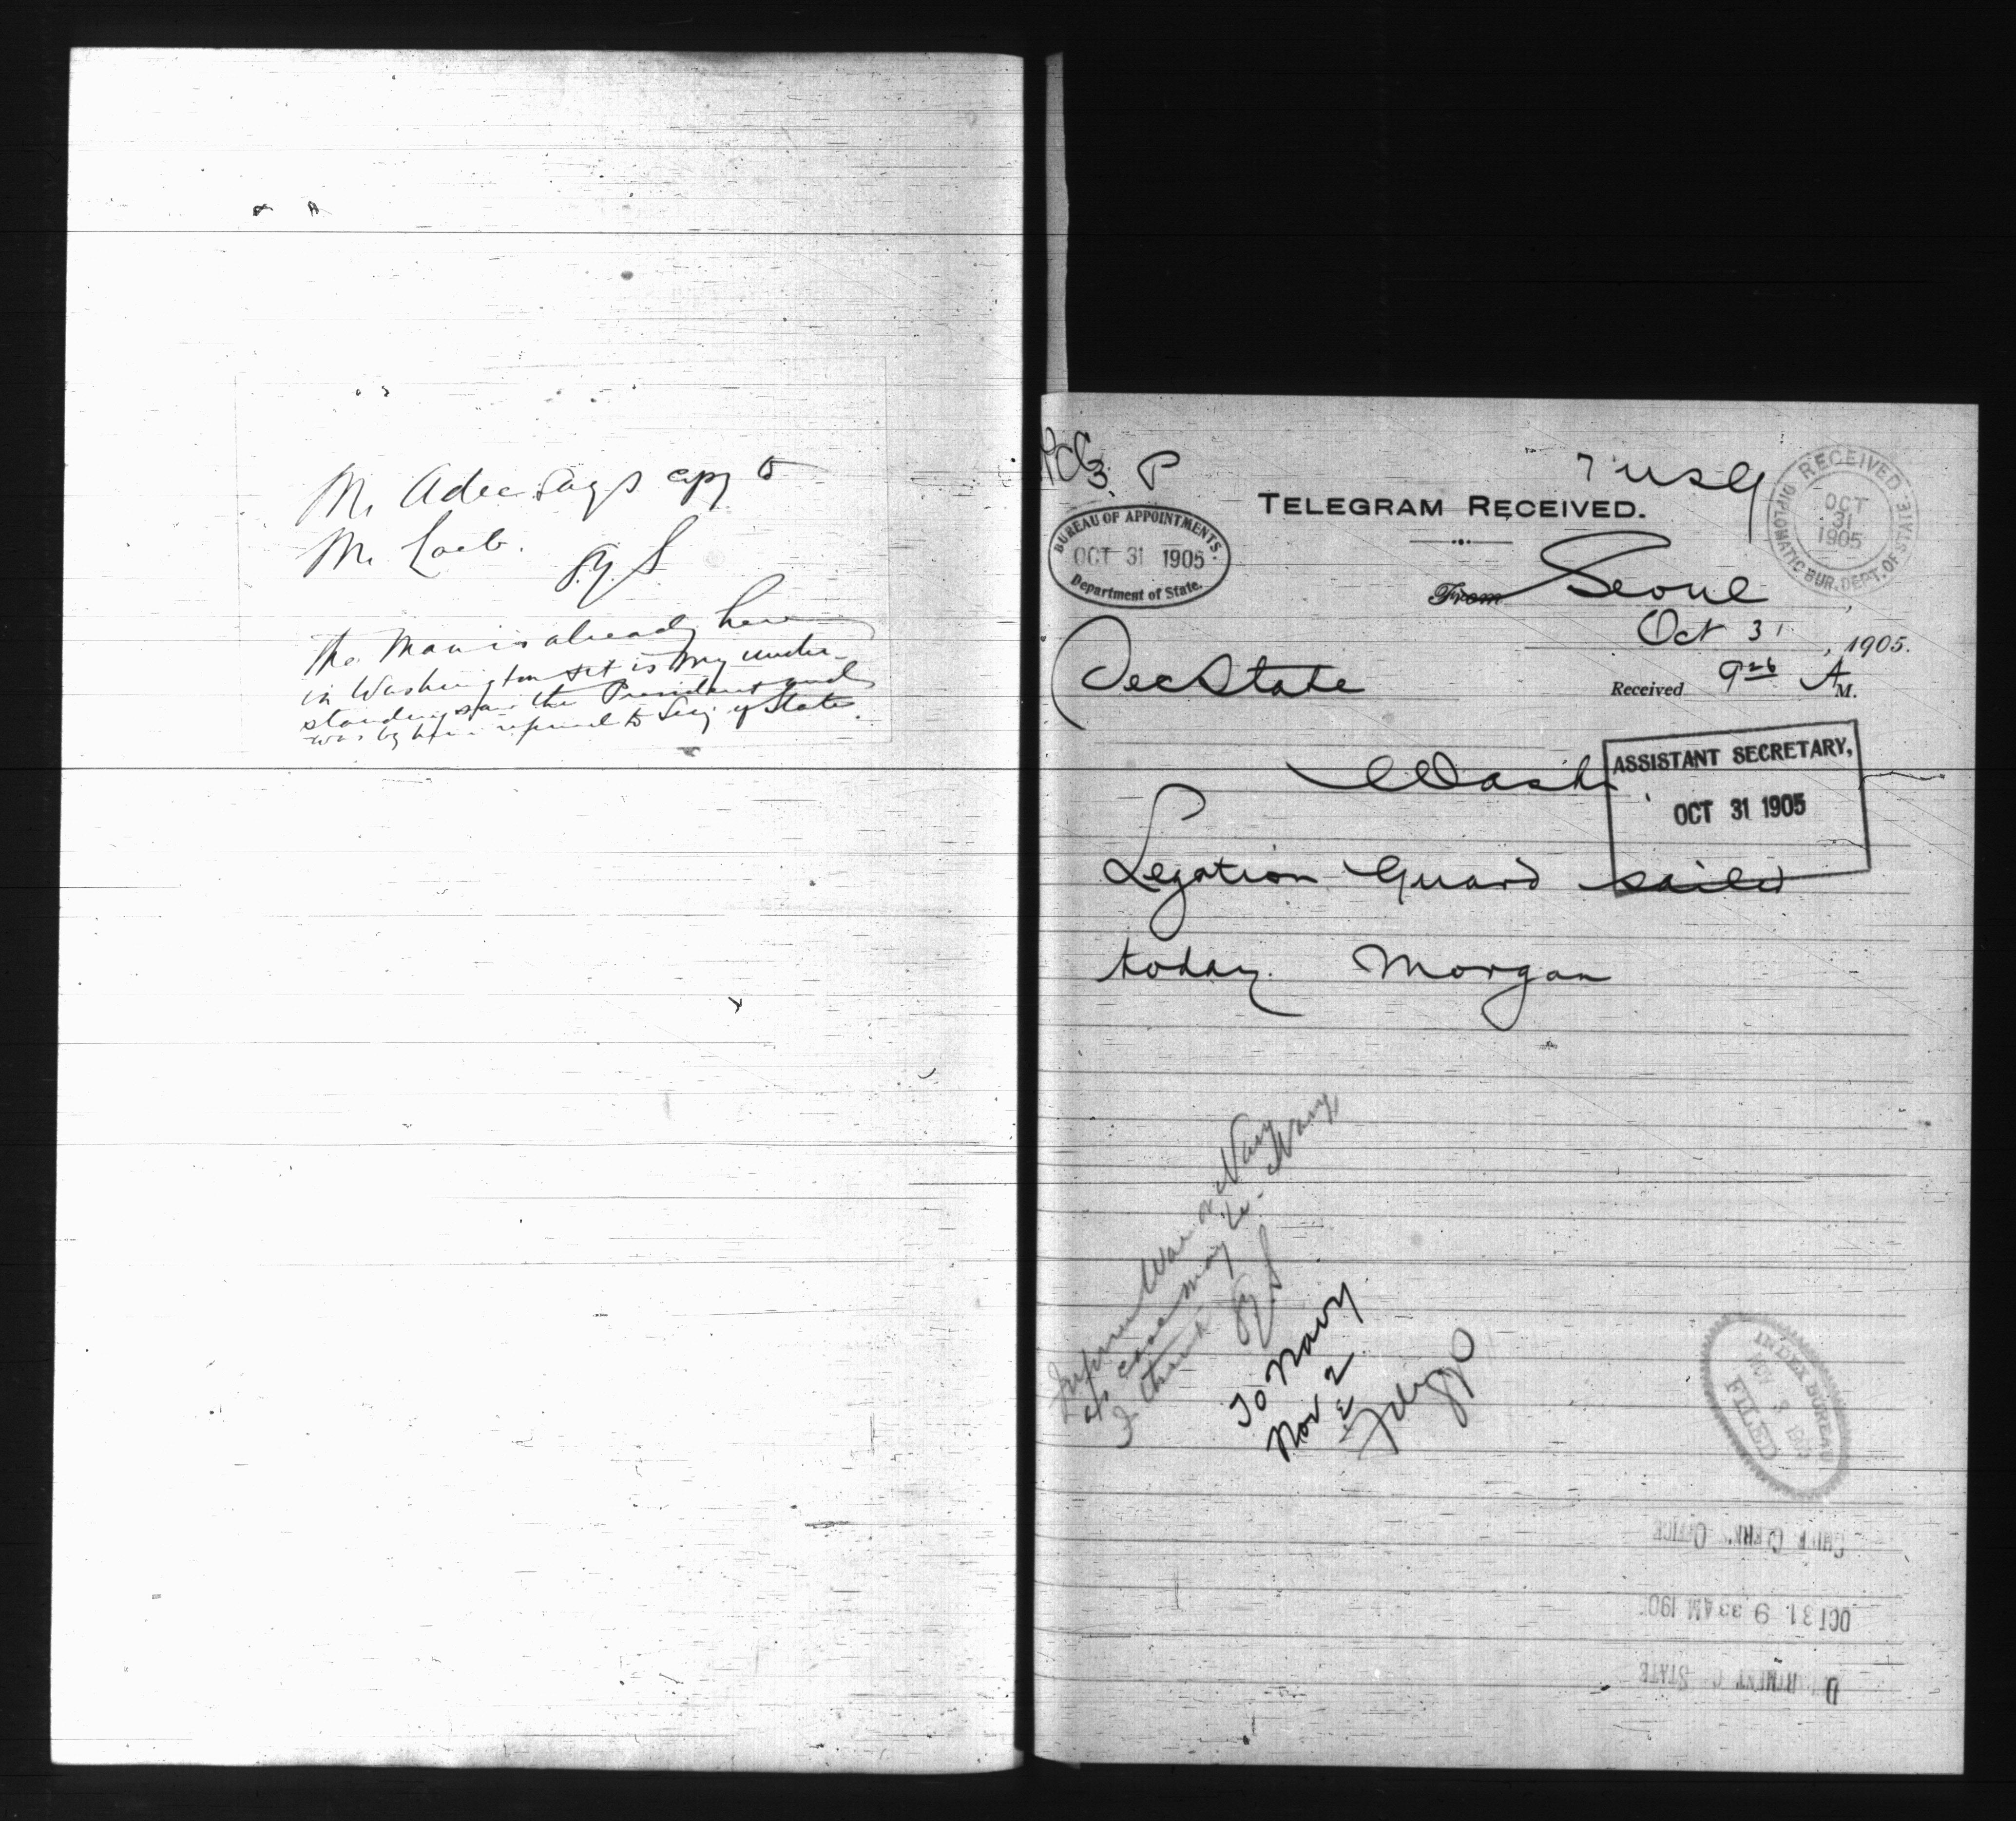 Mr. Adee says copy to
Mr. Loeb.
S.Y.S
The man is already here
in Washington & it is my under-
standing saw the President and
was by him referred to Secy of State.
P
7 US G
TELEGRAM RECEIVED.
RECEIVED
OCT
31
1905
DIPLOMATIC BUR. DEPT. OF STATE
BUREAU OF APPOINTMENTS.
OCT 31 1905
Department of State.
From Seoul
Oct 31, 1905.
SecState
Received 9 26 A M.
Wash
ASSISTANT SECRETARY,
OCT 31 1905
Legation Guard sailed
today. Morgan
Inform War or Navy
as case may be - Navy
I think
S.Y.S
To Navy
Nov 2
INDEX BUREAU
NOV 3 190
FILED
CHIEF CLERK OFFICE
OCT 31 9 33 AM 190
D RTMENT O STATE